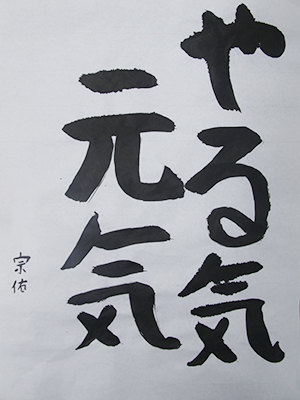 やる気
元気
宗佑